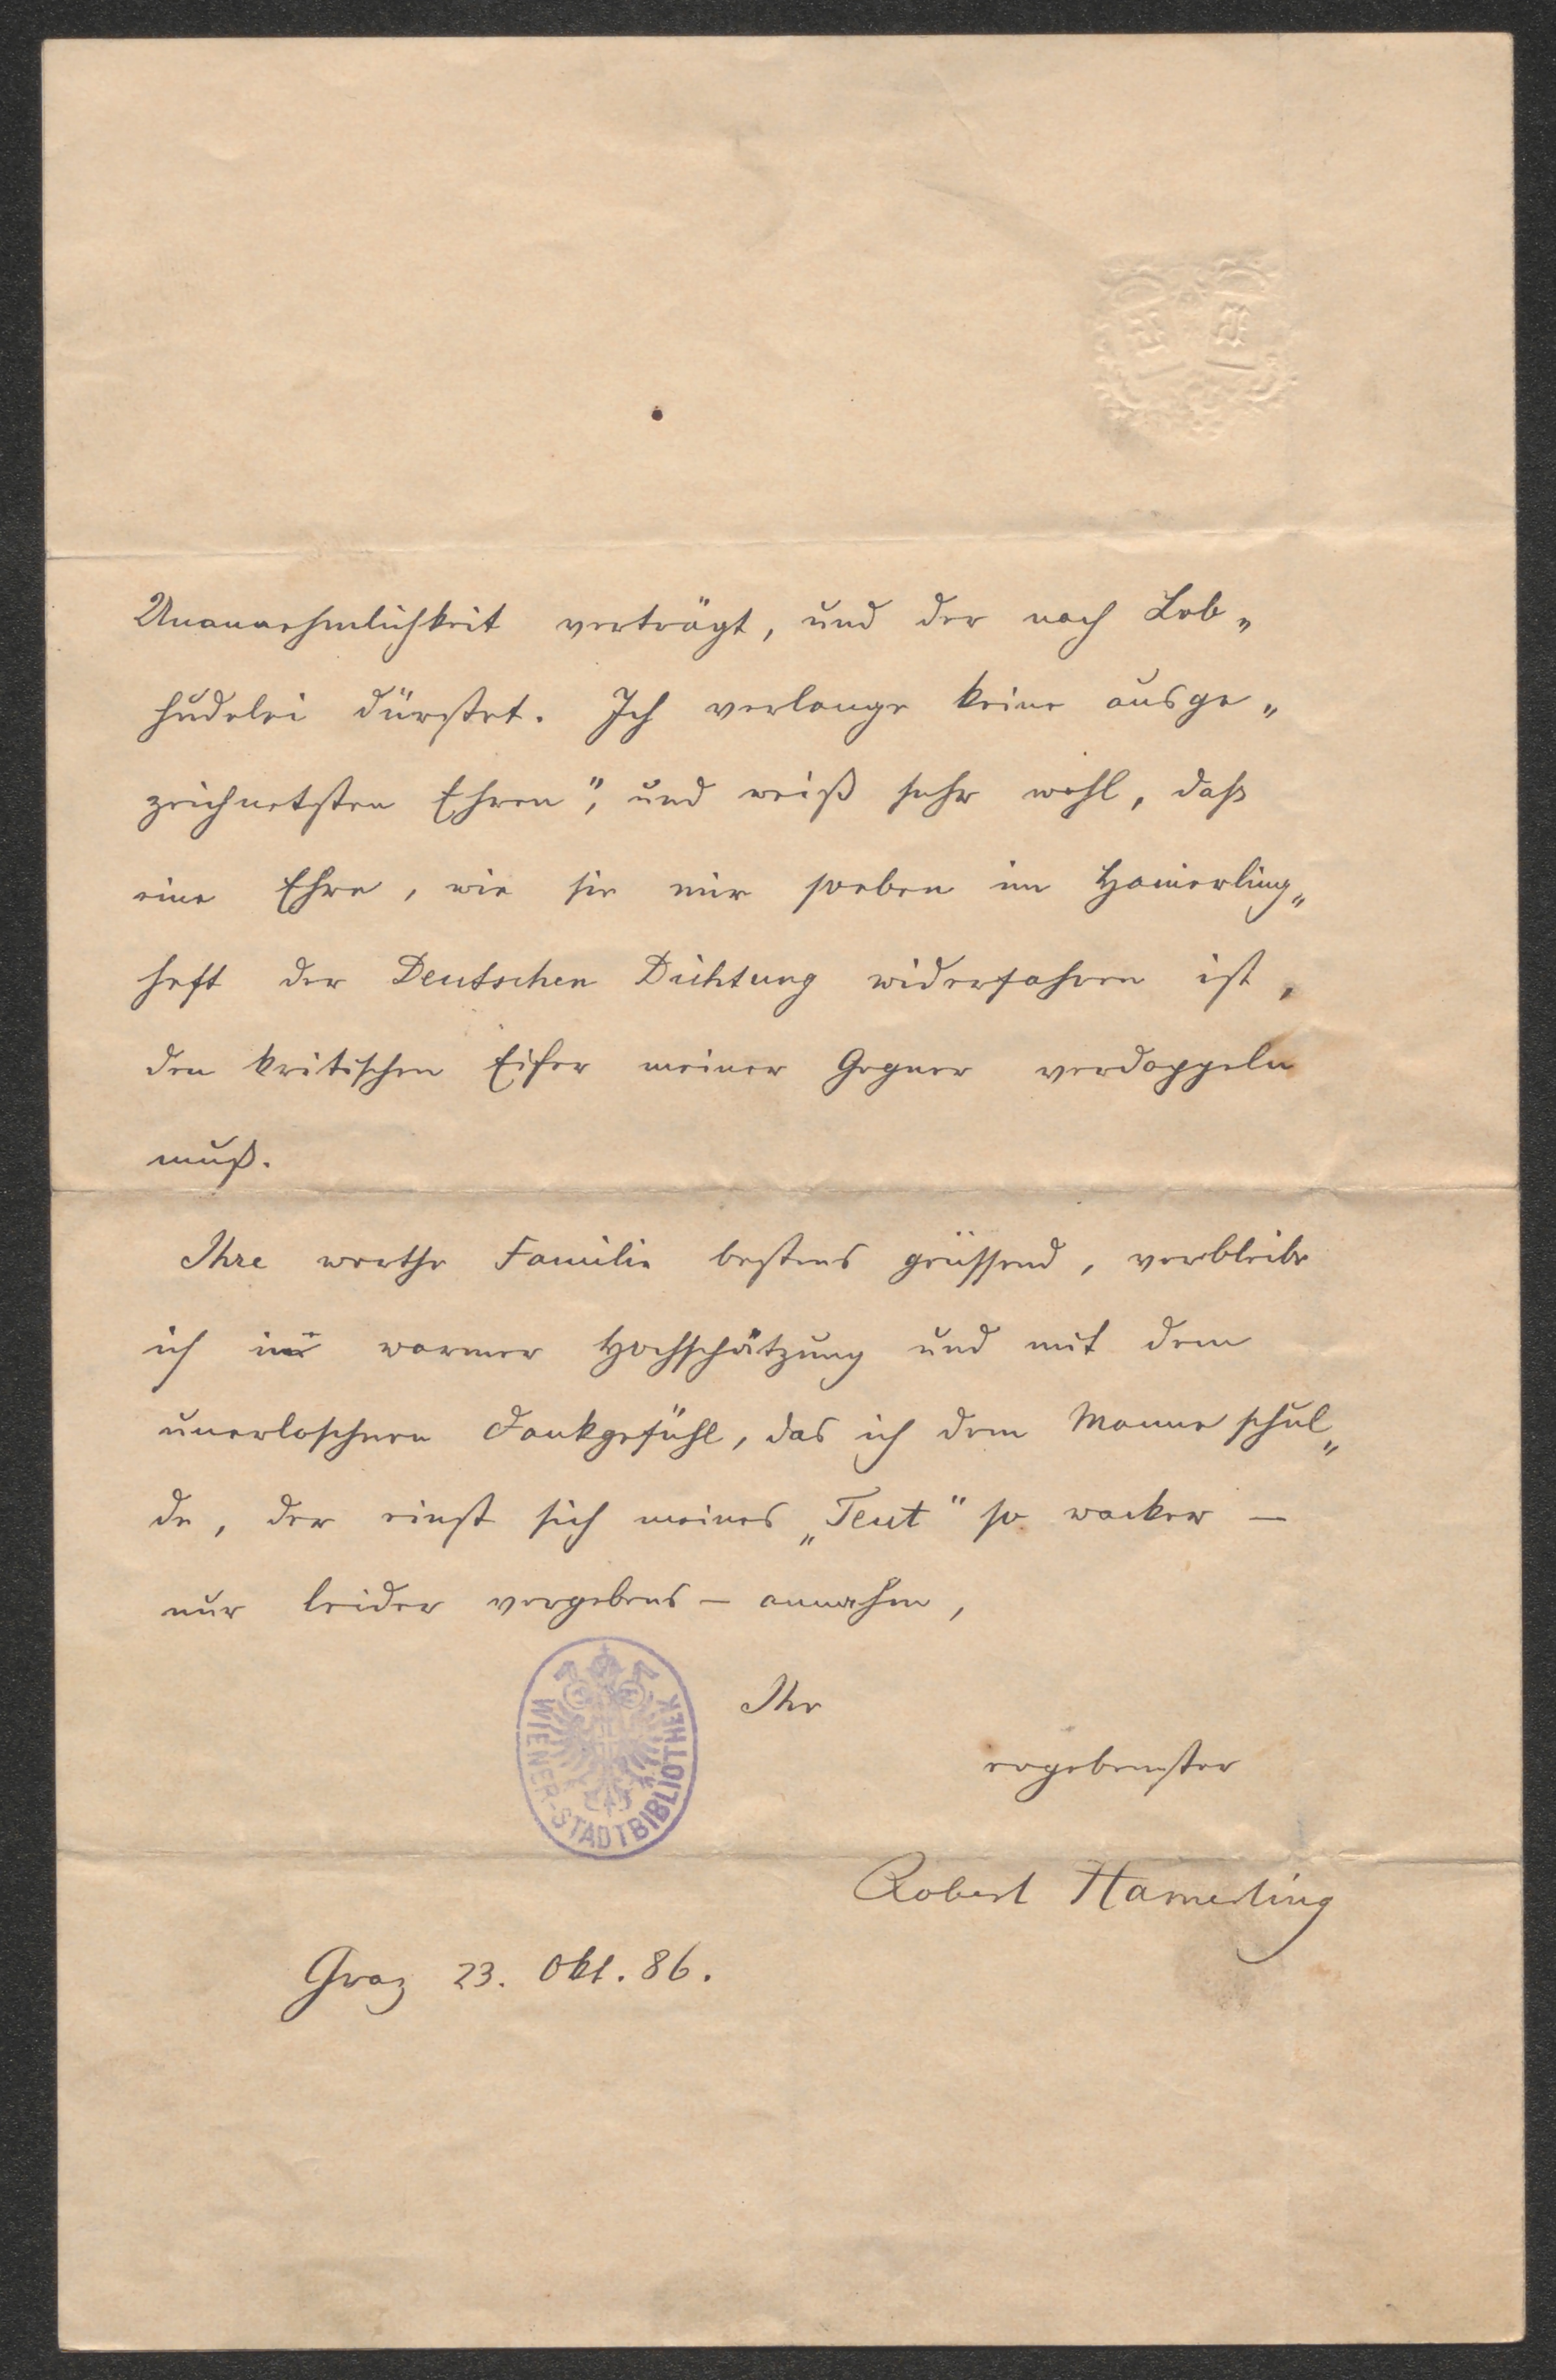 Unannehmlichkeit verträgt, und der nach Lob„
hudelei dürstet. Ich verlange keine ausge„
zeichnetsten Ehren“, und weiß sehr wohl, daß
eine Ehre, wie sie mir soeben im Hamerling„
heft der Deutschen Dichtung widerfahren ist,
den kritischen Eifer meiner Gegner verdoppeln
muß.
Ihre werthe Familie bestens grüssend, verbleibe
ich in warmer Hochschätzung und mit dem
unerloschnen Dankgefühl, das ich dem Manne schul„
de, der einst sich meines „Teut“ so wacker —
nur leider vergebens — annahm,
Ihr
ergebenster
Robert Hamerling
Graz 23. Okt. 86.
WIENER-STADTBIBLIOTHEK